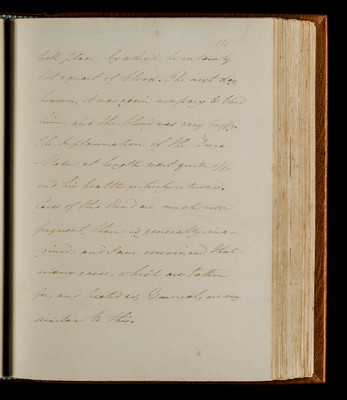 took place, by which he certainly
lost a quart of blood. The next day
however, it was again necessary to bleed
him, and the blood was very buffy.
The Inflammation of the Dura
Mater at length went quite off,
and his health entirely returned.
Cases of this kind are much more
frequent, than is generally ima
gined: and I am convinced that
many cases, which are taken
for, and treated as, Venereal, are
similar to this.